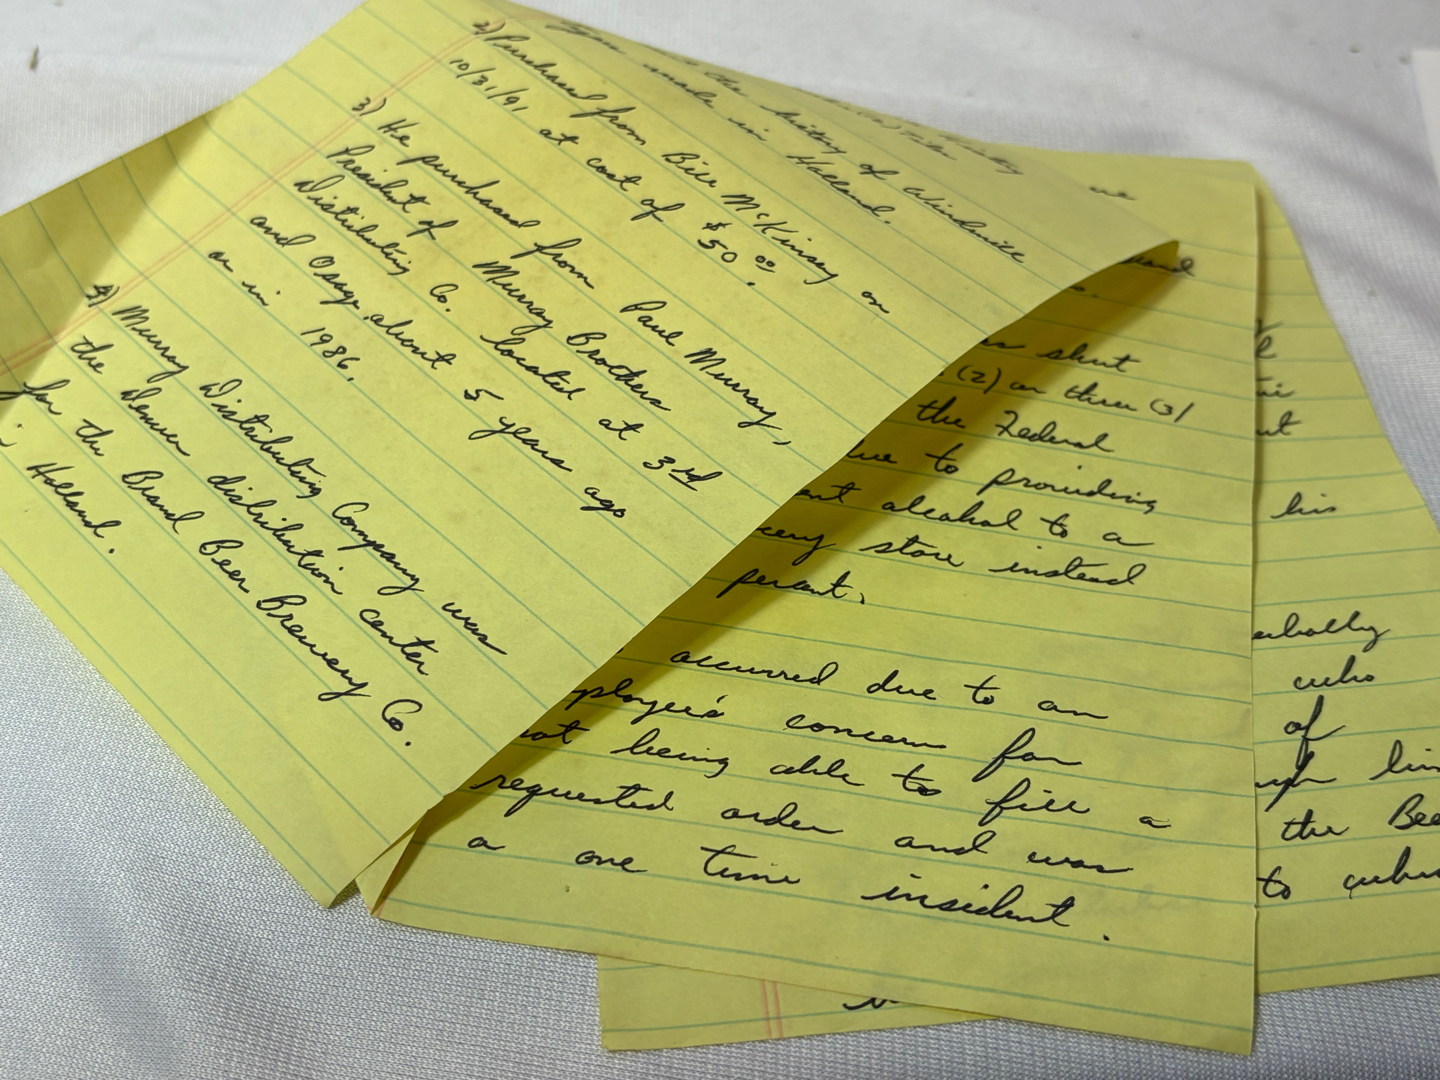 the history of windmill
made in Holland.
2) Purchased from Bill McKinsey on
10/31/91 at cost of $50.00.
3) He purchased from Paul Murray,
President of Murray Brothers
Distributing Co. located at 3rd
and Osage, about 5 years ago
or in 1986.
4) Murray Distributing Company was
the Denver distribution center
for the Brand Beer Brewery Co.
Holland.
shut
(2) or three (3)
the Federal
due to providing
alcohol to a
store instead
occurred due to an
concern for
not being able to fill a
requested order and was
a one time insident.
his
who
of
the Bee
to